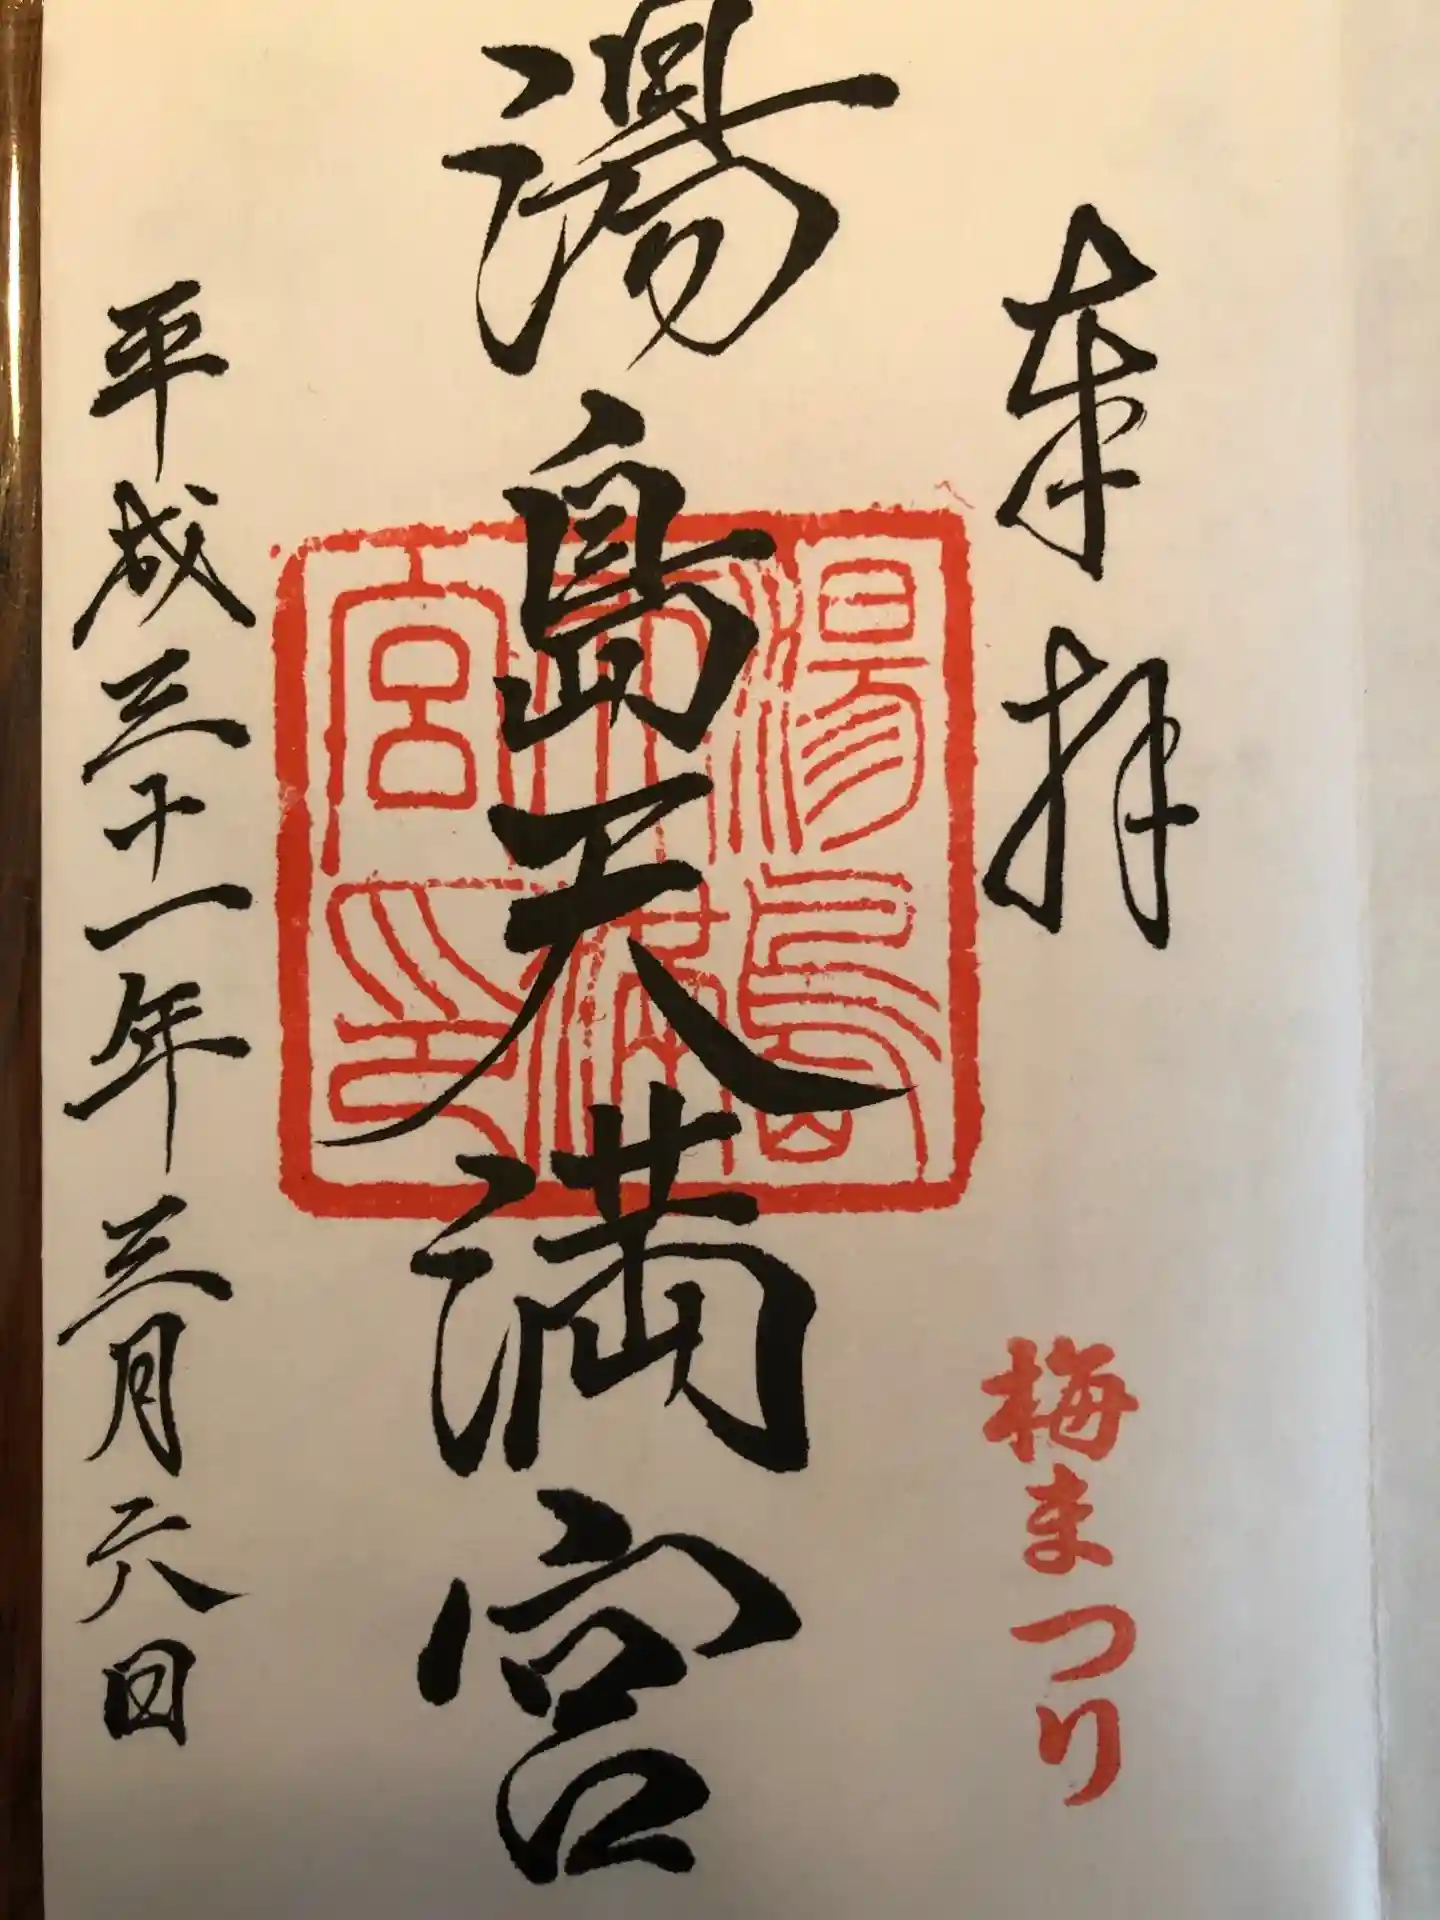 奉拝
梅まつり
湯島天満宮
湯島天満宮印
平成三十一年三月六日